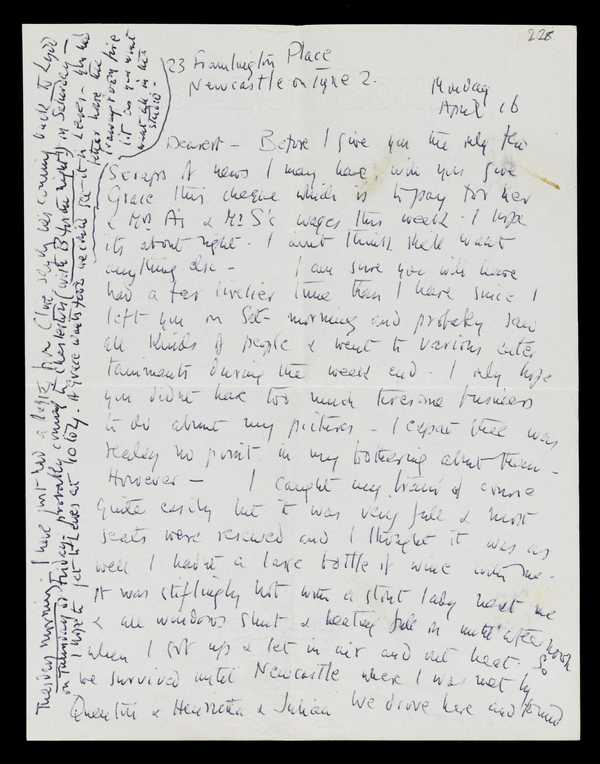 228
23 Framlington Place
Newcastle on Tyne 2.
Monday
April 16
Dearest – Before I give you the very few
scraps of news I may have, will you give
Grace this cheque which is to pay for her
& Mrs A's & Mr S's wages this week. I hope
its about right. I dont think she'll want
anything else – I am sure you will have
had a far livelier time than I have since I
left you on Sat. morning and probably saw
all kinds of people & went to various enter
tainments during the week end. I only hope
you didnt have too much tiresome business
to do about my pictures – I expect there was
really no point in my bothering about them –
However – I caught my train of course
quite easily but it was very full & most
seats were reserved and I thought it was as
well I hadn't a large bottle of wine with me.
It was stiflingly hot with a stout lady next me
& all windows shut & heating full on until after York
when I got up & let in air and out heat. So
we survived until Newcastle where I was met by
Quentin & Henrietta & Julian We drove here and found
Tuesday morning. I have just had a letter from Clive, saying he's coming back to
on Thursday or Friday, probably coming to Charleston (with B for the night) on Saturday –
I hope to get to Lewes at 40. If Grace wants food we could get it in Lewes – you had
better have the
fire
lit in
studio.